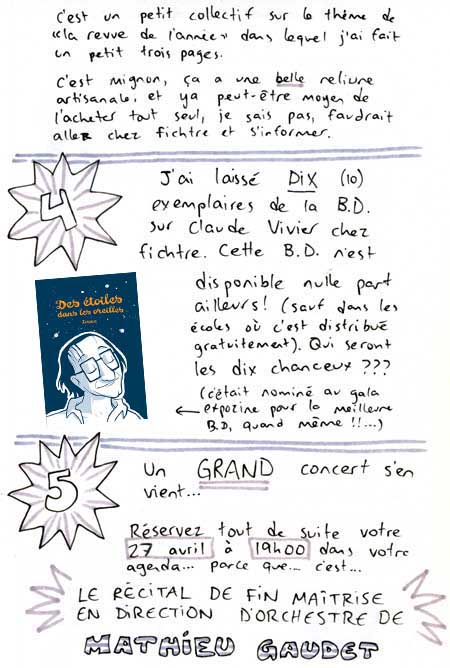 c'est un petit collectif sur le thème de
«la revue de l'année» dans lequel j'ai fait
un petit trois pages.
C'est mignon, ça a une belle reliure
artisanale, et ya peut-être moyen de
l'acheter tout seul, je sais pas, faudrait
aller chez fichtre et s'informer.
4
J'ai laissé DIX (10)
exemplaires de la B.D.
sur Claude Vivier chez
fichtre. Cette B.D. n'est
disponible nulle part
ailleurs! (sauf dans les
écoles où c'est distribué
gratuitement). Qui seront
les dix chanceux ???
(c'était nominé au gala
expozine pour la meilleure
B.D, quand même !!...)
Des étoiles
dans les oreilles
5
Un GRAND concert s'en
vient...
Réservez tout de suite votre
27 avril à 19h00 dans votre
agenda... parce que... c'est...
LE RÉCITAL DE FIN MAÎTRISE
EN DIRECTION D'ORCHESTRE DE
MATHIEU GAUDET